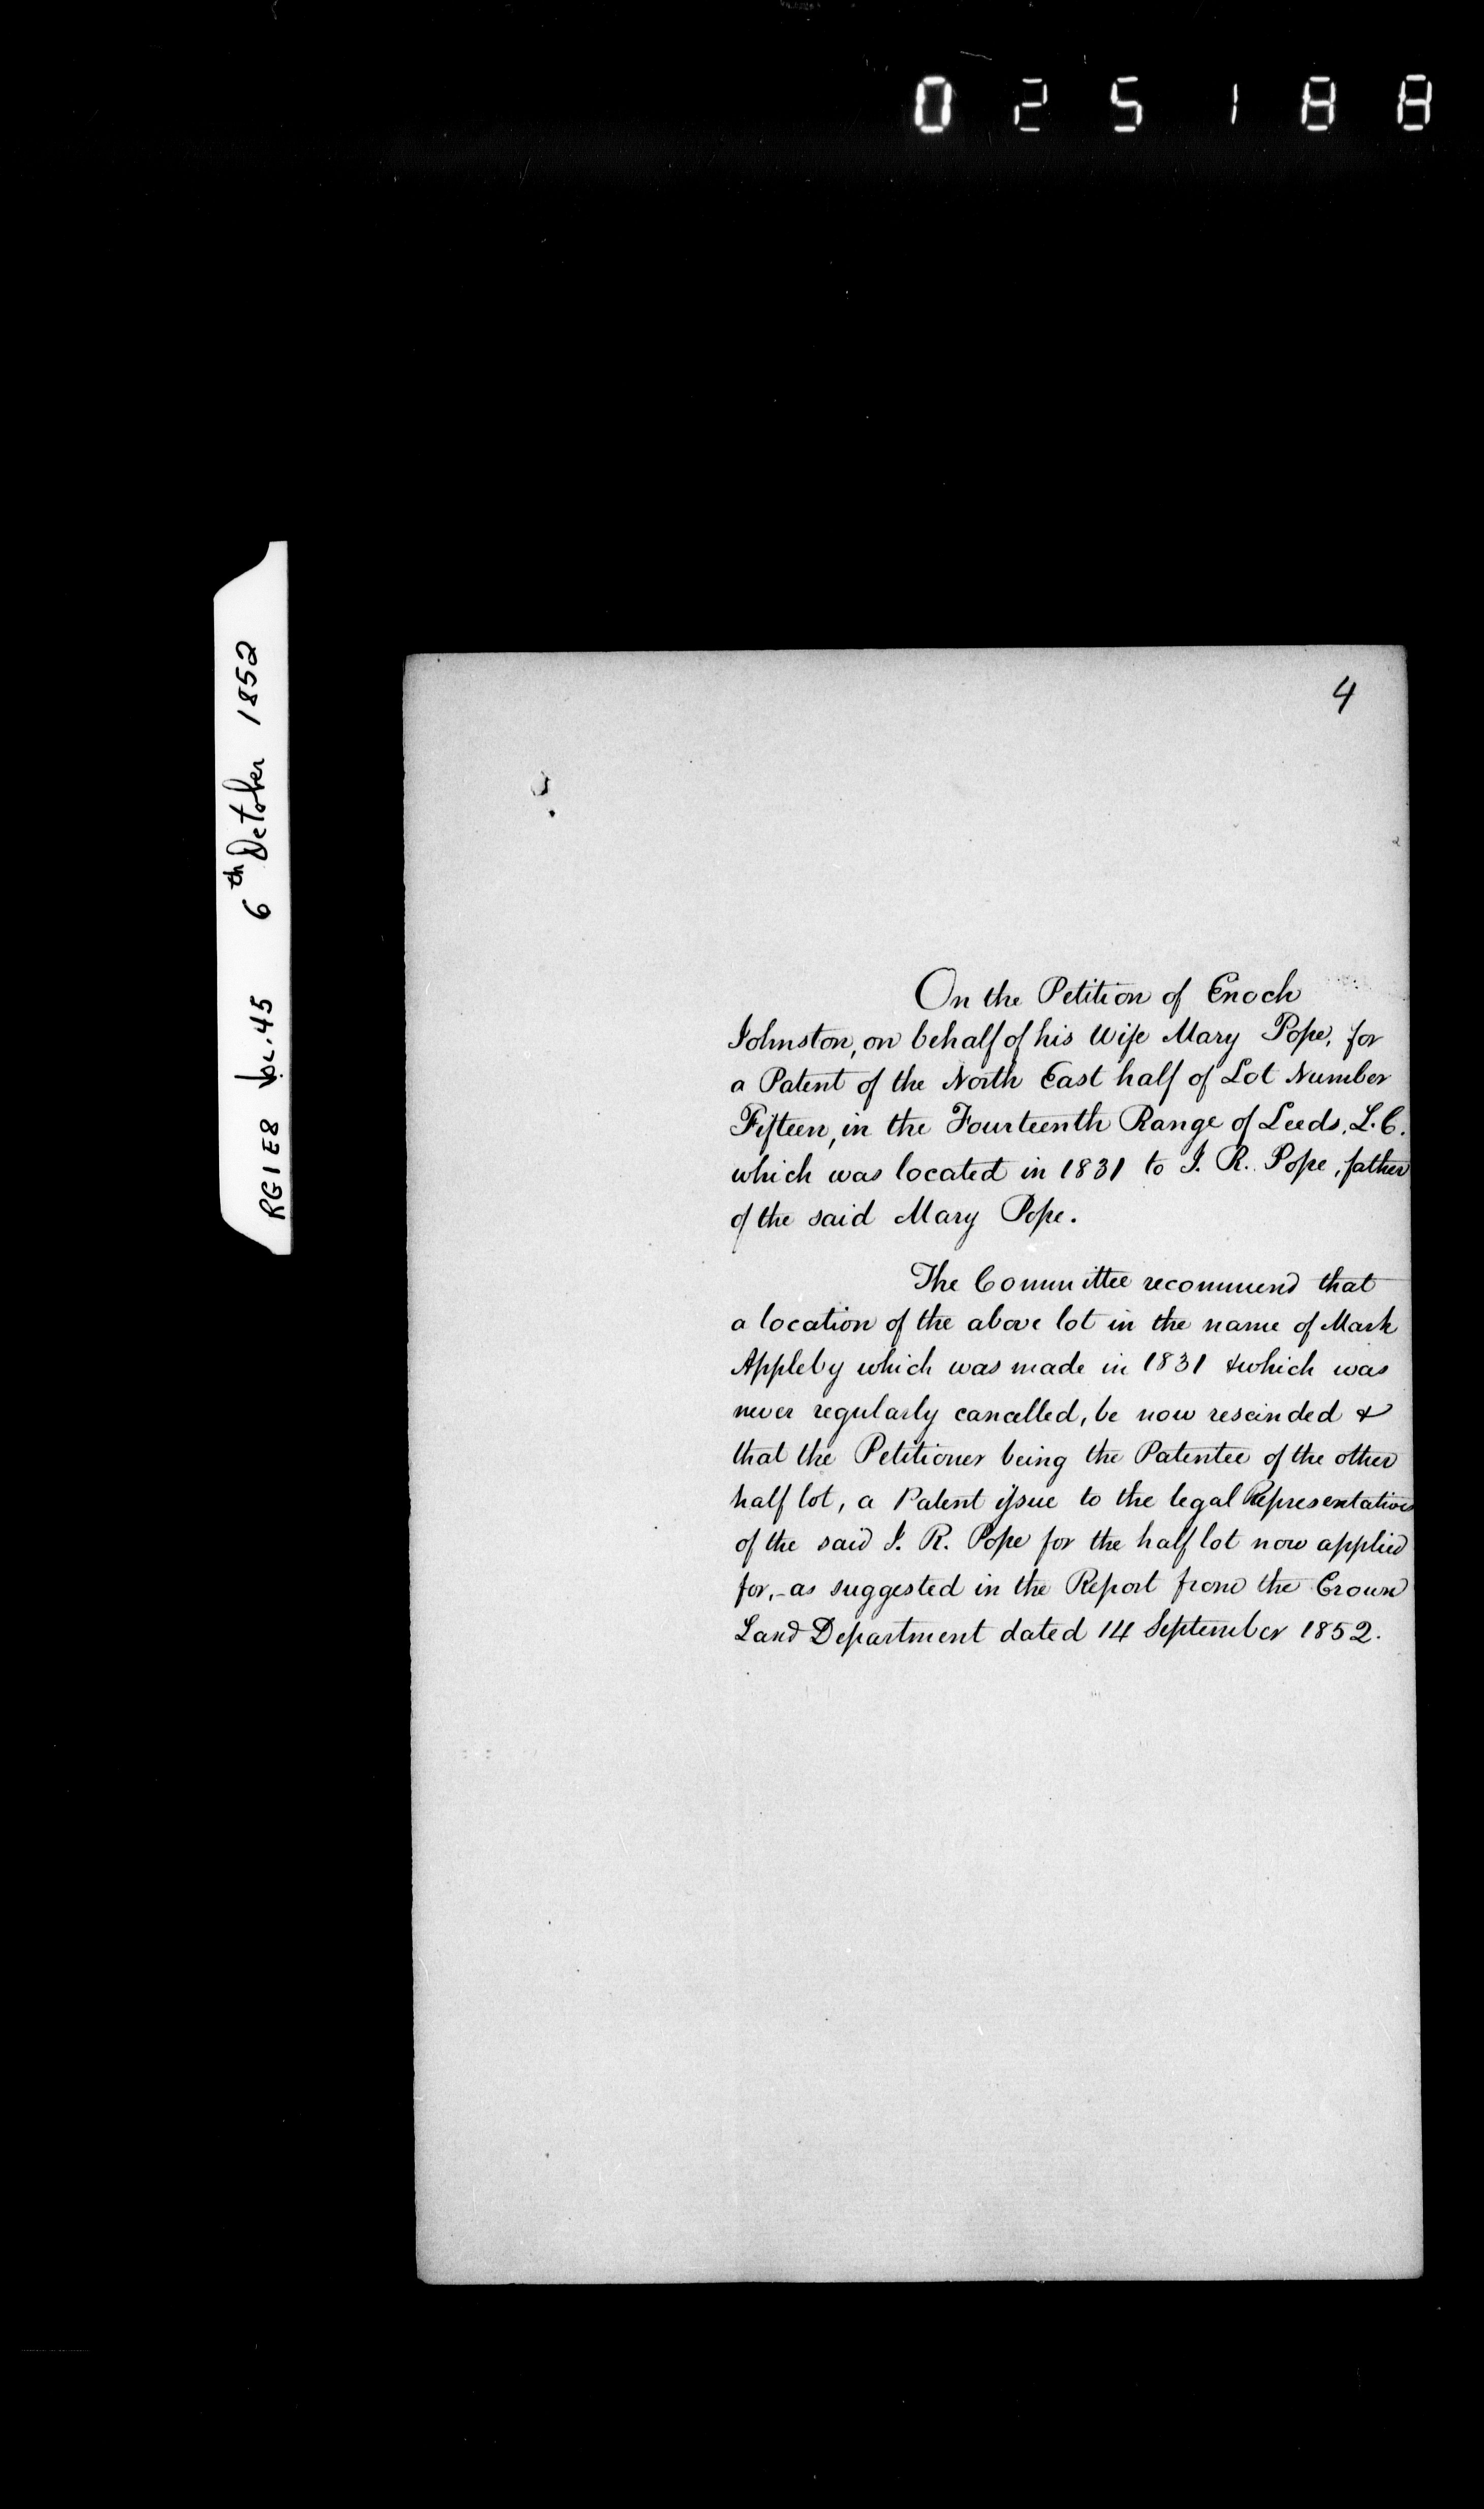 0 2 5 1 8 8
RG1E8 Vol. 45 6th October 1852
4
On the Petition of Enoch
Johnston, on behalf of his Wife Mary Pope, for
a Patent of the North East half of Lot Number
Fifteen, in the Fourteenth Range of Leeds, L.C.
which was located in 1831 to J. R. Pope, father
of the said Mary Pope.
The Committee recommend that
a location of the above lot in the name of Mark
Appleby which was made in 1831 & which was
never regularly cancelled, be now rescinded &
that the Petitioner being the Patentee of the other
half lot, a Patent issue to the legal Representatives
of the said J. R. Pope for the half lot now applied
for, - as suggested in the Report from the Crown
Land Department dated 14 September 1852.